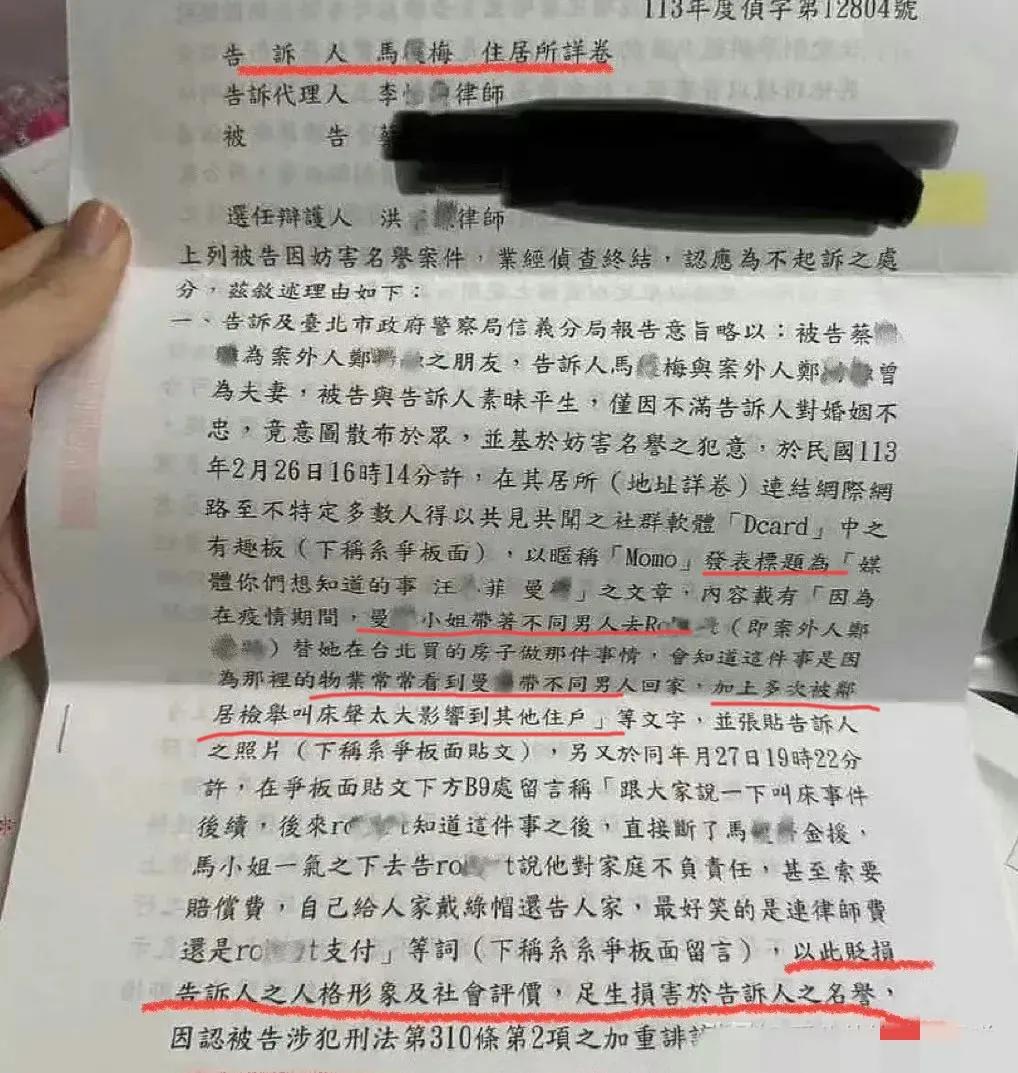 113年度偵字第12804號
告 訴 人 馬 梅 住居所詳卷
告訴代理人 李 律師
被 告 蔡
選任辯護人 洪 律師
上列被告因妨害名譽案件,業經偵查終結,認應為不起訴之處
分,茲敘述理由如下:
一、告訴及臺北市政府警察局信義分局報告意旨略以:被告蔡
為案外人鄭 之朋友,告訴人馬 梅與案外人鄭 曾
為夫妻,被告與告訴人素昧平生,僅因不滿告訴人對婚姻不
忠,竟意圖散布於眾,並基於妨害名譽之犯意,於民國113
年2月26日16時14分許,在其居所(地址詳卷)連結網際網
路至不特定多數人得以共見共聞之社群軟體「Dcard」中之
有趣板(下稱系爭板面),以暱稱「Momo」發表標題為「媒
體你們想知道的事 汪 菲 曼 」之文章,內容載有「因為
在疫情期間,曼 小姐帶著不同男人去Ro t(即案外人鄭
)替她在台北買的房子做那件事情,會知道這件事是因
為那裡的物業常常看到曼 帶不同男人回家,加上多次被鄰
居檢舉叫床聲太大影響到其他住戶」等文字,並張貼告訴人
之照片(下稱系爭板面貼文),另又於同年月27日19時22分
許,在爭板面貼文下方B9處留言稱「跟大家說一下叫床事件
後續,後來ro t知道這件事之後,直接斷了馬 金援,
馬小姐一氣之下去告ro t說他對家庭不負責任,甚至索要
賠償費,自己給人家戴綠帽還告人家,最好笑的是連律師費
還是ro t支付」等詞(下稱系系爭板面留言),以此貶損
告訴人之人格形象及社會評價,足生損害於告訴人之名譽,
因認被告涉犯刑法第310條第2項之加重誹